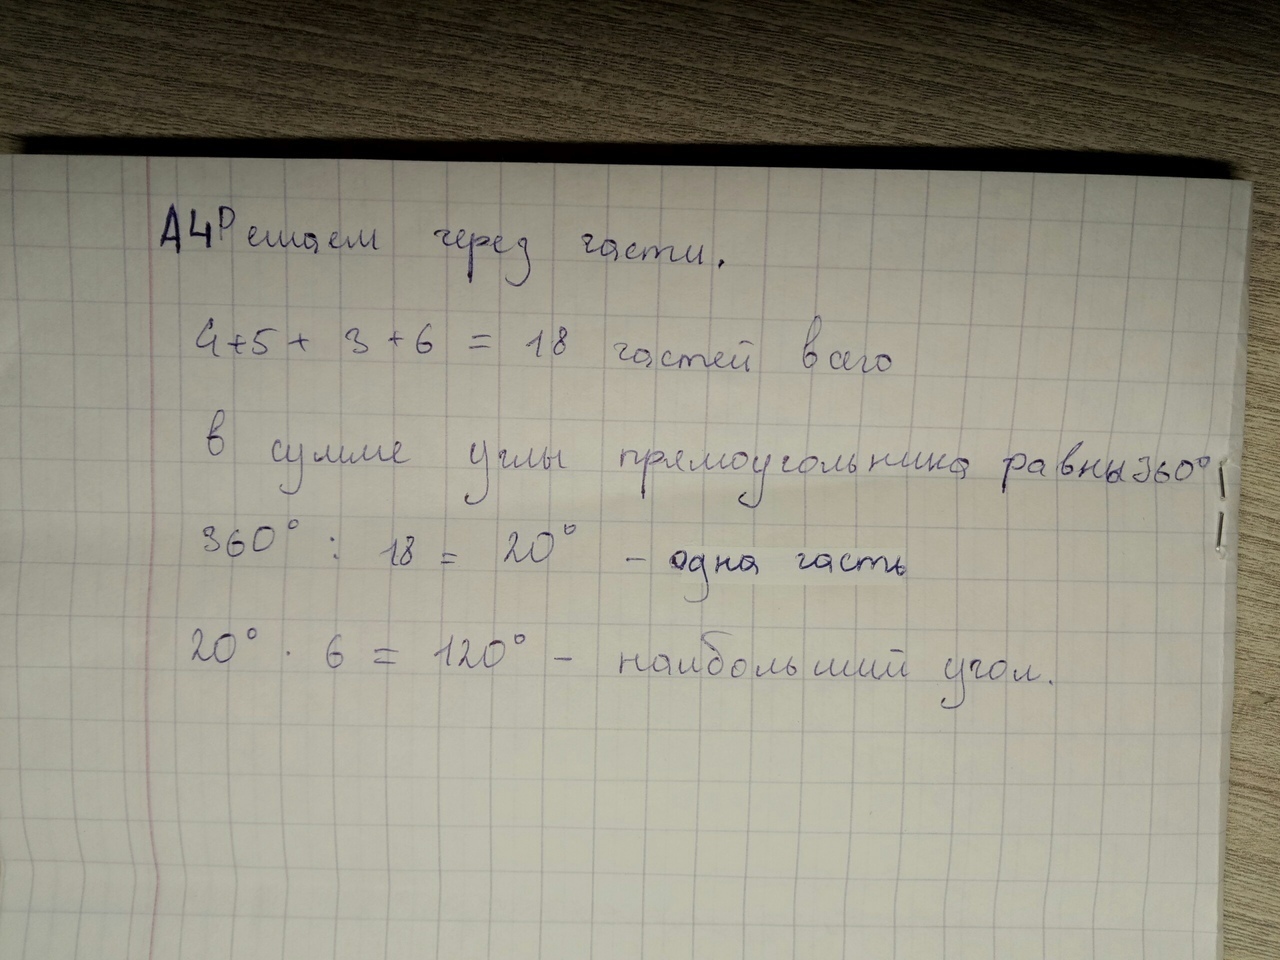 А4 Решаем черед части.
4+5+ 3+6 = 18 частей всего
в сумме углы прямоугольника равны 360°
360° : 18 = 20° - одна часть
20° · 6 = 120° - наибольший угол.